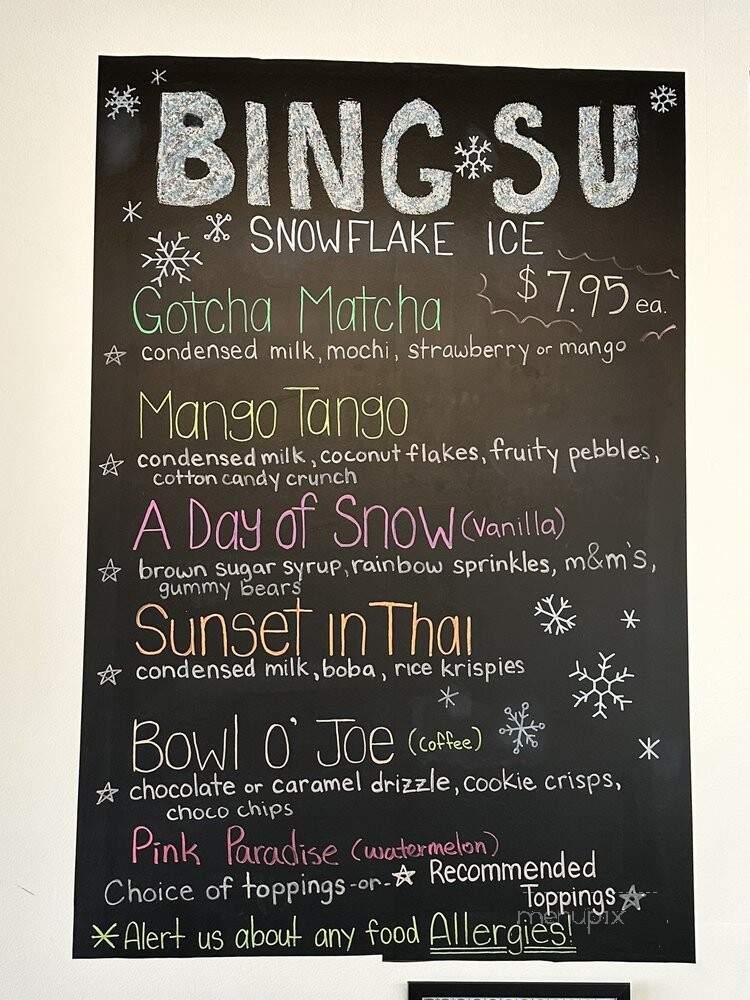 BING SU
SNOWFLAKE ICE
$7.95 ea.
Gotcha Matcha
☆ condensed milk, mochi, strawberry or mango
Mango Tango
☆ condensed milk, coconut flakes, fruity pebbles,
cotton candy crunch
A Day of Snow (Vanilla)
☆ brown sugar syrup, rainbow sprinkles, m&m's,
gummy bears
Sunset in Thai
☆ condensed milk, boba, rice krispies
Bowl O' Joe (Coffee)
☆ chocolate or caramel drizzle, cookie crisps,
choco chips
Pink Paradise (watermelon)
Choice of toppings -or- ☆ Recommended
Toppings ☆
menupix
* Alert us about any food Allergies!